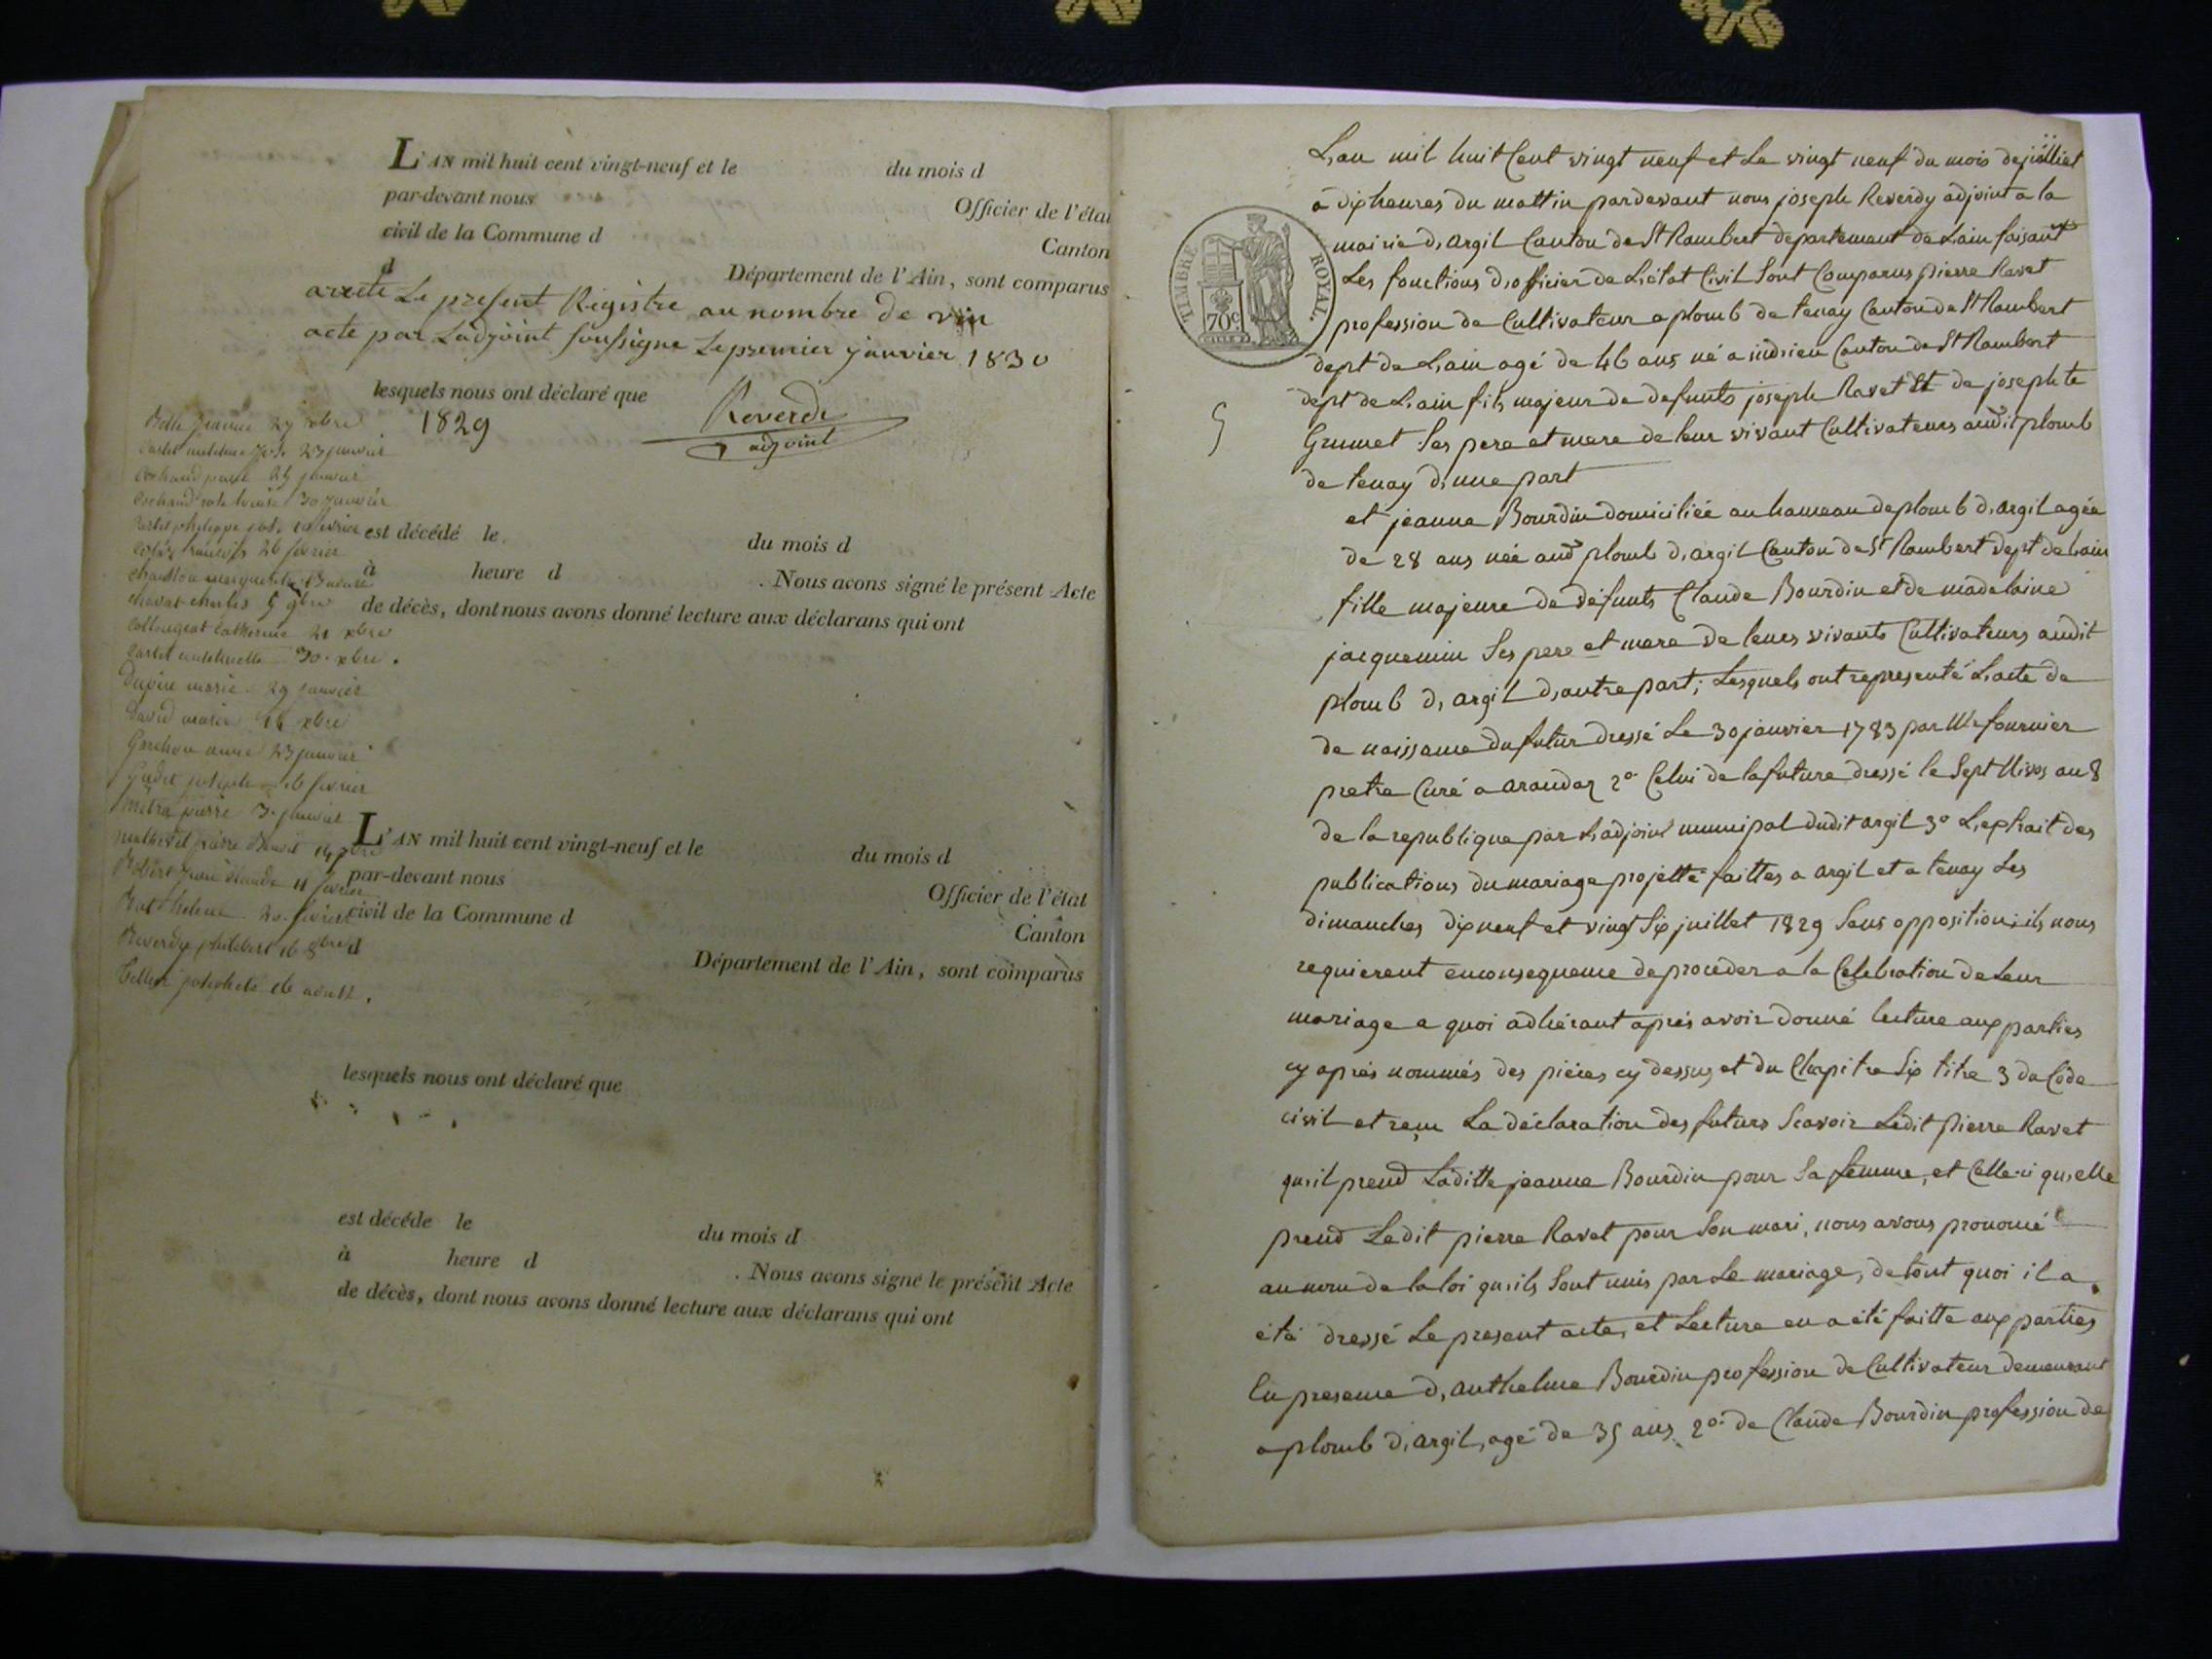 L'AN mil huit cent vingt-neuf et le du mois d
par-devant nous Officier de l'état
civil de la Commune d Canton
d Département de l'Ain, sont comparus
arrete Le present Registre au nombre de vin
acte par Ladjoint soussigne Le premier janvier 1830
lesquels nous ont déclaré que
Reverdi
adjoint
1829
23 janvier
25 janvier
30 janvier
philippe
26 fevrier
charles 5 9bre
catherine 21 xbre
30. xbre.
marie 29 janvier
David marie 16 xbre
anne 23 janvier
16 fevrier
pierre 3. janvier
11 fevrier
helene. 20. fevrier
Reverdy philibert 16 8bre
josephete 16 aoust.
est décédé le du mois d
à heure d . Nous avons signé le présent Acte
de décès, dont nous avons donné lecture aux déclarans qui ont
L'AN mil huit cent vingt-neuf et le du mois d
par-devant nous Officier de l'état
civil de la Commune d Canton
d Département de l'Ain, sont comparus
lesquels nous ont déclaré que
est décéde le du mois d
à heure d . Nous avons signé le présent Acte
de décès, dont nous avons donné lecture aux déclarans qui ont
TIMBRE ROYAL.
70c
5
L,an mil huit Cent vingt neuf et Le vingt neuf du mois de juilliet
a dix heures du mattin pardevant nous joseph Reverdy adjoint a la
mairie d,argil Canton de St Rambert departemant de Lain faisant
Les fonctions d,officier de L,état Civil Sont Comparus pierre Ravet
profession de Cultivateur a plomb de tenay Canton de St Rambert
dept de L,ain agé de 46 ans né a indrieu Canton de St Rambert
dept de L,ain fils majeur de defunts joseph Ravet Et de josephte
Grumet Ses pere et mere de leur vivant Cultivateurs audit plomb
de tenay d,une part
et jeanne Bourdin domiciliée au hameau de plomb d,argil agée
de 28 ans née aud plomb d,argil Canton de St Rambert dept de Lain
fille majeure de défunts Claude Bourdin et de madelaine
jacquemin Ses pere et mere de leurs vivants Cultivateurs audit
plomb d,argil d,autre part; Lesquels ont representé L,acte de
de naissance du futur dressé Le 30 janvier 1783 par Mr fournier
pretre Curé a arandaz 2o Celui de la future dressé le Sept Nivos an 8
de la republique par L,adjoint municipal dudit argil 3o L,extrait des
publications du mariage projetté faittes a argil et a tenay Les
dimanches dix neuf et vingt Six juillet 1829 Sans opposition; ils nous
requierent enconsequence de proceder a la Celebration de Leur
mariage a quoi adhérant aprés avoir donné lecture aux parties
cy aprés nommés des piéces cy dessus et du Chapitre Six titre 3 du Code
civil et reçu La déclaration des futurs Scavoir Ledit pierre Ravet
qu,il prend Laditte jeanne Bourdin pour Sa femme, et Celle-ci qu,elle
prend Ledit pierre Ravet pour Son mari, nous avons prononcé
au nom de la loi qu,ils Sont unis par Le mariage, de tout quoi il a
été dressé Le present acte, et Lecture en a été faitte aux parties
En presence d,anthelme Bourdin profession de Cultivateur demeurant
a plomb d,argil, agé de 35 ans 2o de Claude Bourdin profession de